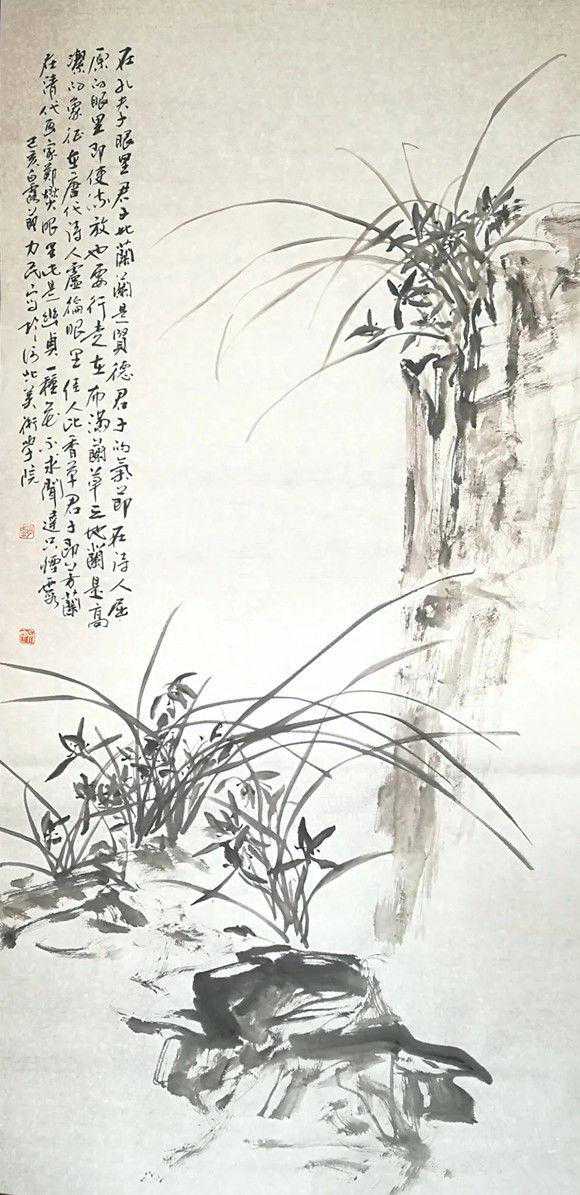 在孔夫子眼里君子比蘭蘭是賢德君子的氣節在诗人屈
原的眼里即使流放也要行走在布滿蘭草之地蘭是高
潔的象征在唐代诗人盧倫眼里佳人比香草君子即芳蘭
在清代画家鄭燮眼里此是幽貞一種花不求聞達只煙霞
己亥白露节力民写於河北美術学院